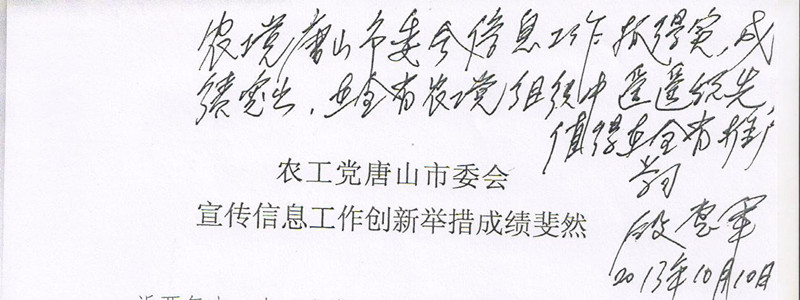 农工党唐山市委会信息工作抓得实,成
绩突出,在全省农工党组织中遥遥领先,
值得在全省推广
学习
段惠军
2013年10月10日
农工党唐山市委会
宣传信息工作创新举措成绩斐然